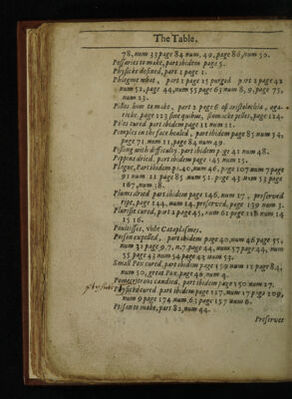 The Table.
78, num 33 page 84 num, 49, page 86, num 50.
Possaries to make, part ibidem page 5.
Physicke defined, part 1 page 1.
Phlegme what, part 1 page 15 purged part 2 page 42
num 52, page 44, num 55 page 63 num 8, 9, page 75,
num 23.
Pilles how to make, part 2 page 6 of aristolochia, aga-
ricke, page 123 sine quibus, stomacke pilles, page 124.
Piles cured part ibidem page 12 num 21.
Pimples in the face healed, part ibidem page 85 num 34,
page 71 num 11, page 84 num 49.
Pissing with difficulty, part ibidem page 41 num 48.
Pippins dried, part ibidem page 145 num 15.
Plague, Part ibidem p. 40, num 46, page 107 num 7 page
91 num 11 page 85 num 51. page 43 num 53 page
167, num 38.
Plums dried part ibidem page 146, num 17, preserved
ripe, page 144, num 14. preserved, page 139 num 3.
Plurisie cured, part 2 page 45, num 61 page 118 num 14
15 16.
Poultisses, vide Cataplasmes.
Poison expelled, part ibidem page 40, num 46 page 35,
num 31 page 9. 7, n. 7, page 44, num 57 page 44, num
55 page 43 num 54 page 43 num 53.
Small Pox cured, part ibidem page 159 num 12 page 84,
num 50, great Pox, page 46, num 4.
Pomecitrons candied, part ibidem page 150 num 27.
Physicke cured part ibidem page 127, num 17 page 109,
num 9 page 174 num 63 page 157 num 6.
Ptisan to make, part 82, num 44.
Preserves